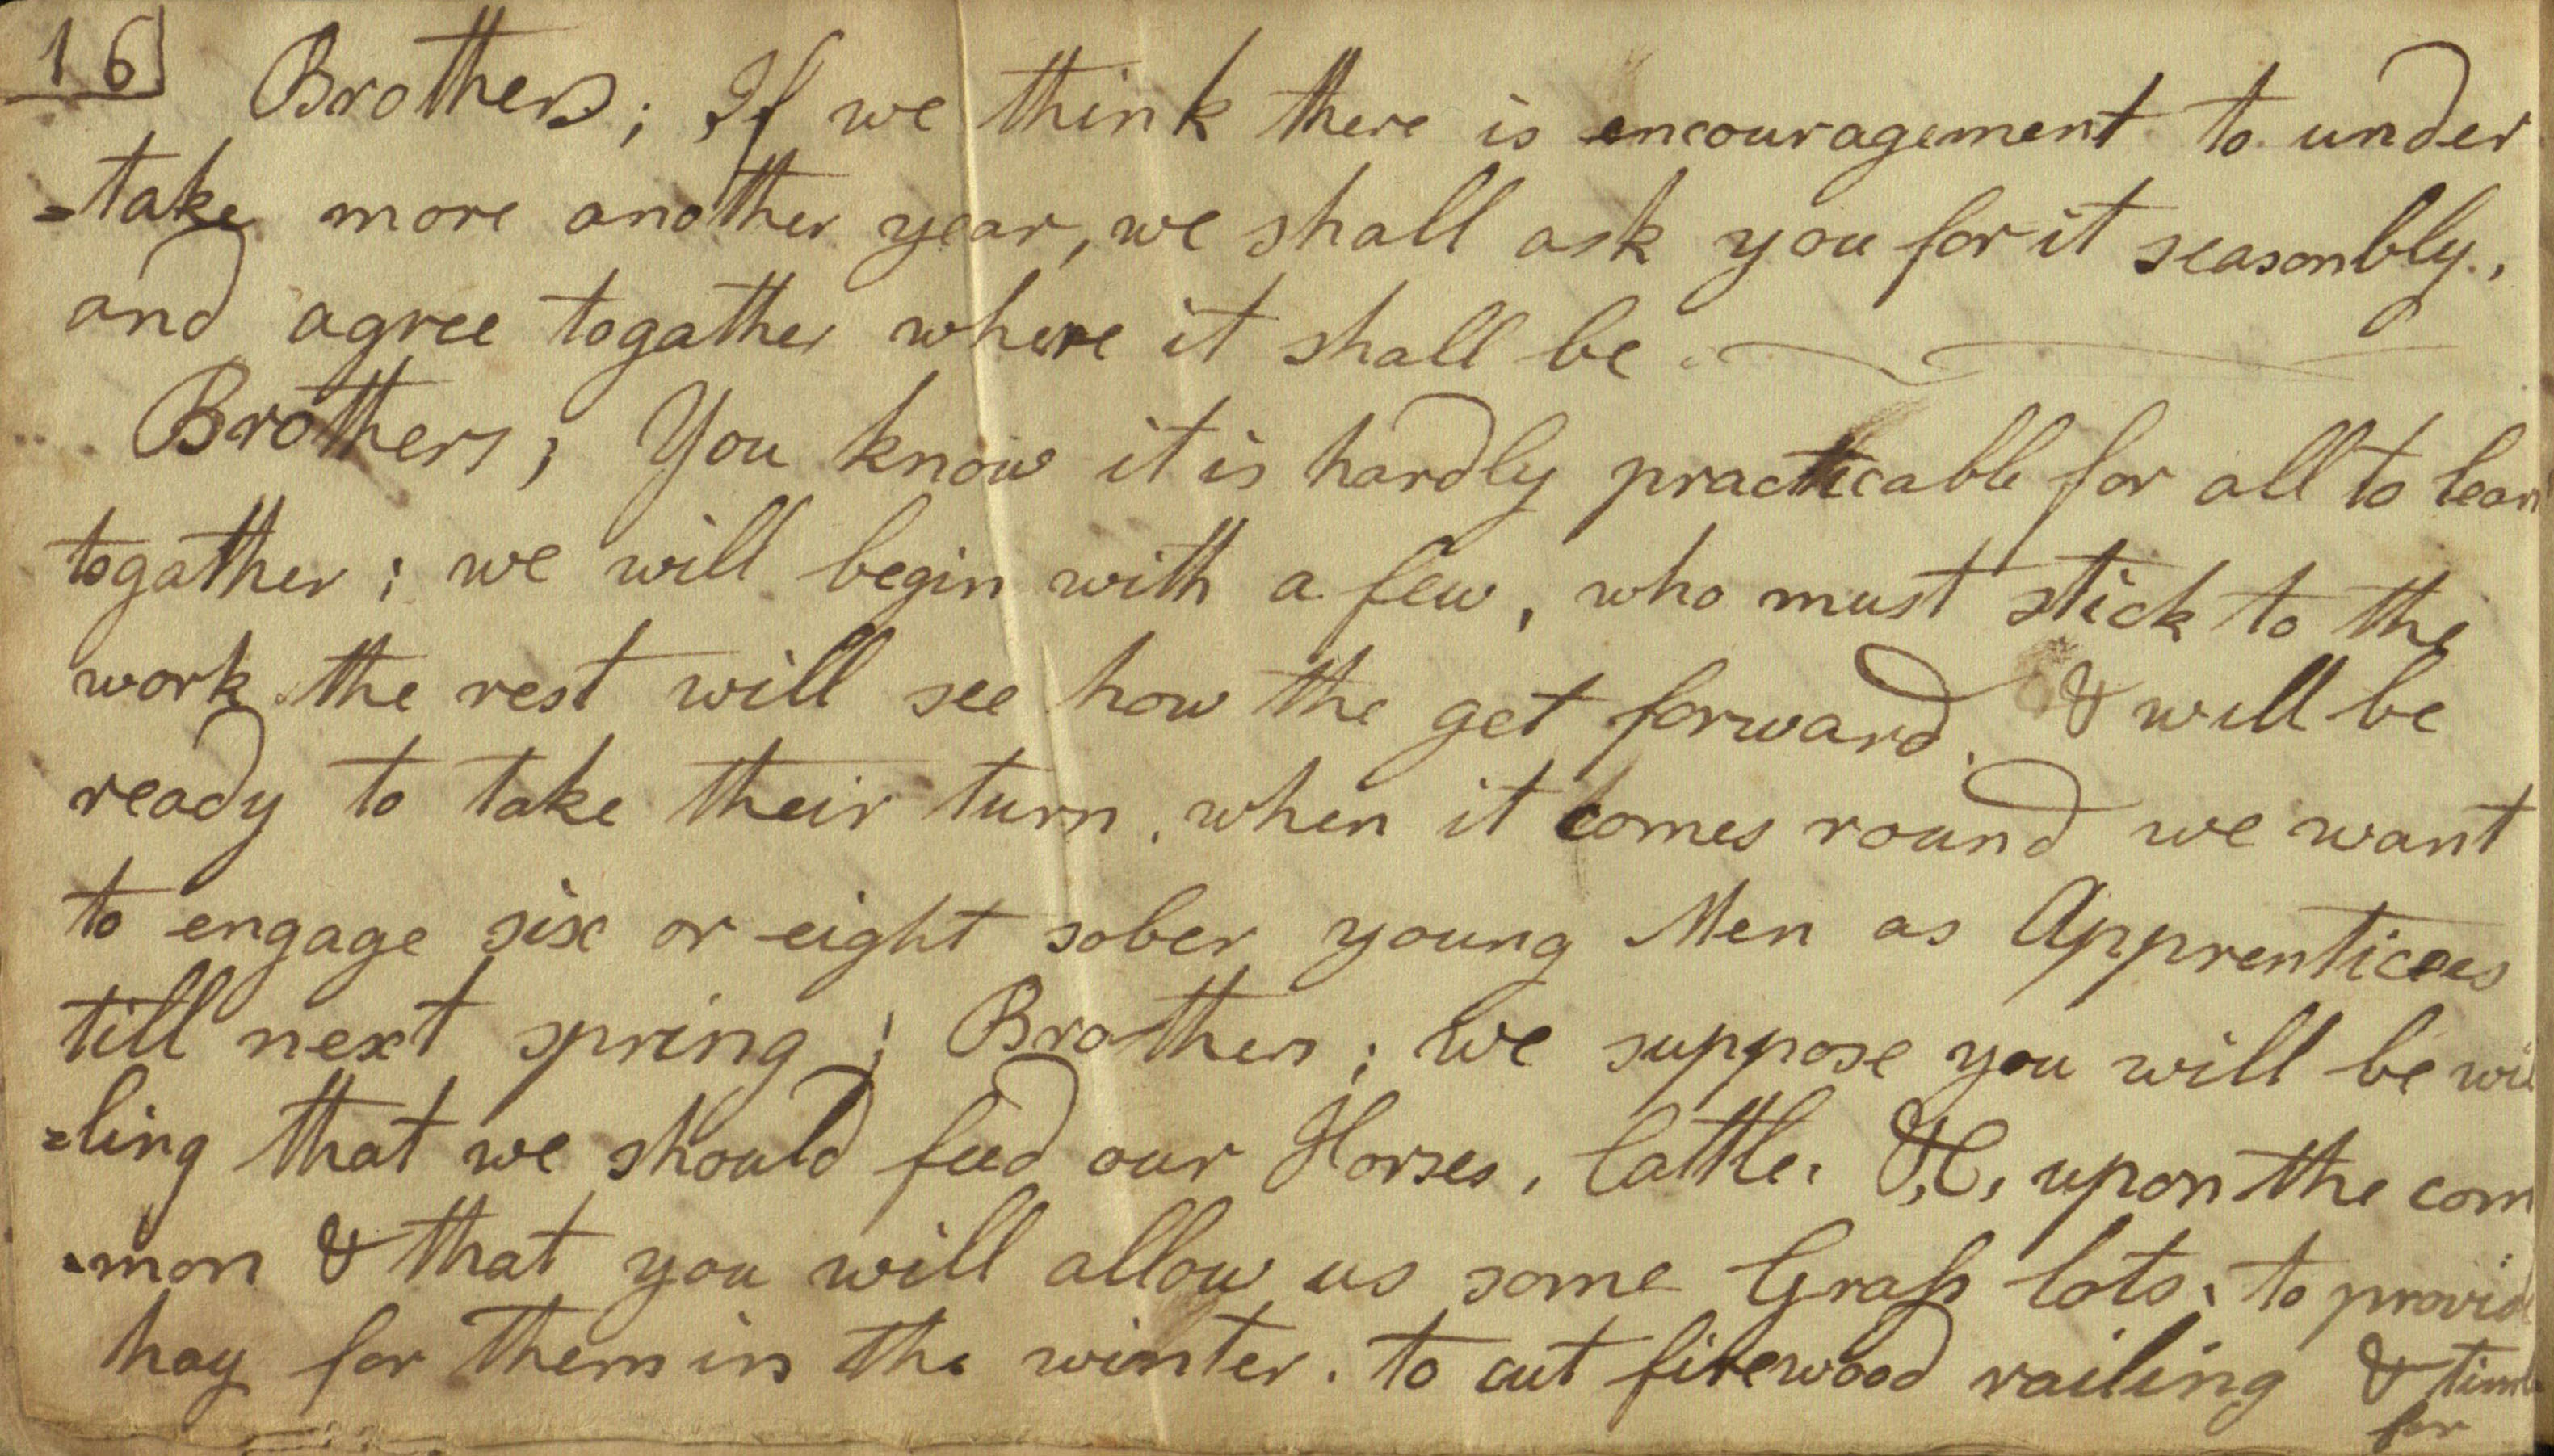 16
Brothers; If we think there is encouragement to under
=take more another year, we shall ask you for it seasonbly.,
and agree togather where it shall be.
Brothers; You know it is hardly practicable for all to learn
togather; we will begin with a few, who must stick to the
work the rest will see how the get forward. & will be
ready to take their turn. when it comes round we want
to engage six or eight sober young Men as Apprenticees
till next spring; Brothers; We suppose you will be wil
=ling that we should feed our Horses, Cattle, &C, upon the com
=mon & that you will allow us some Grass lots, to provide
hay for them in the winter. to cut firewood railing & timber
for